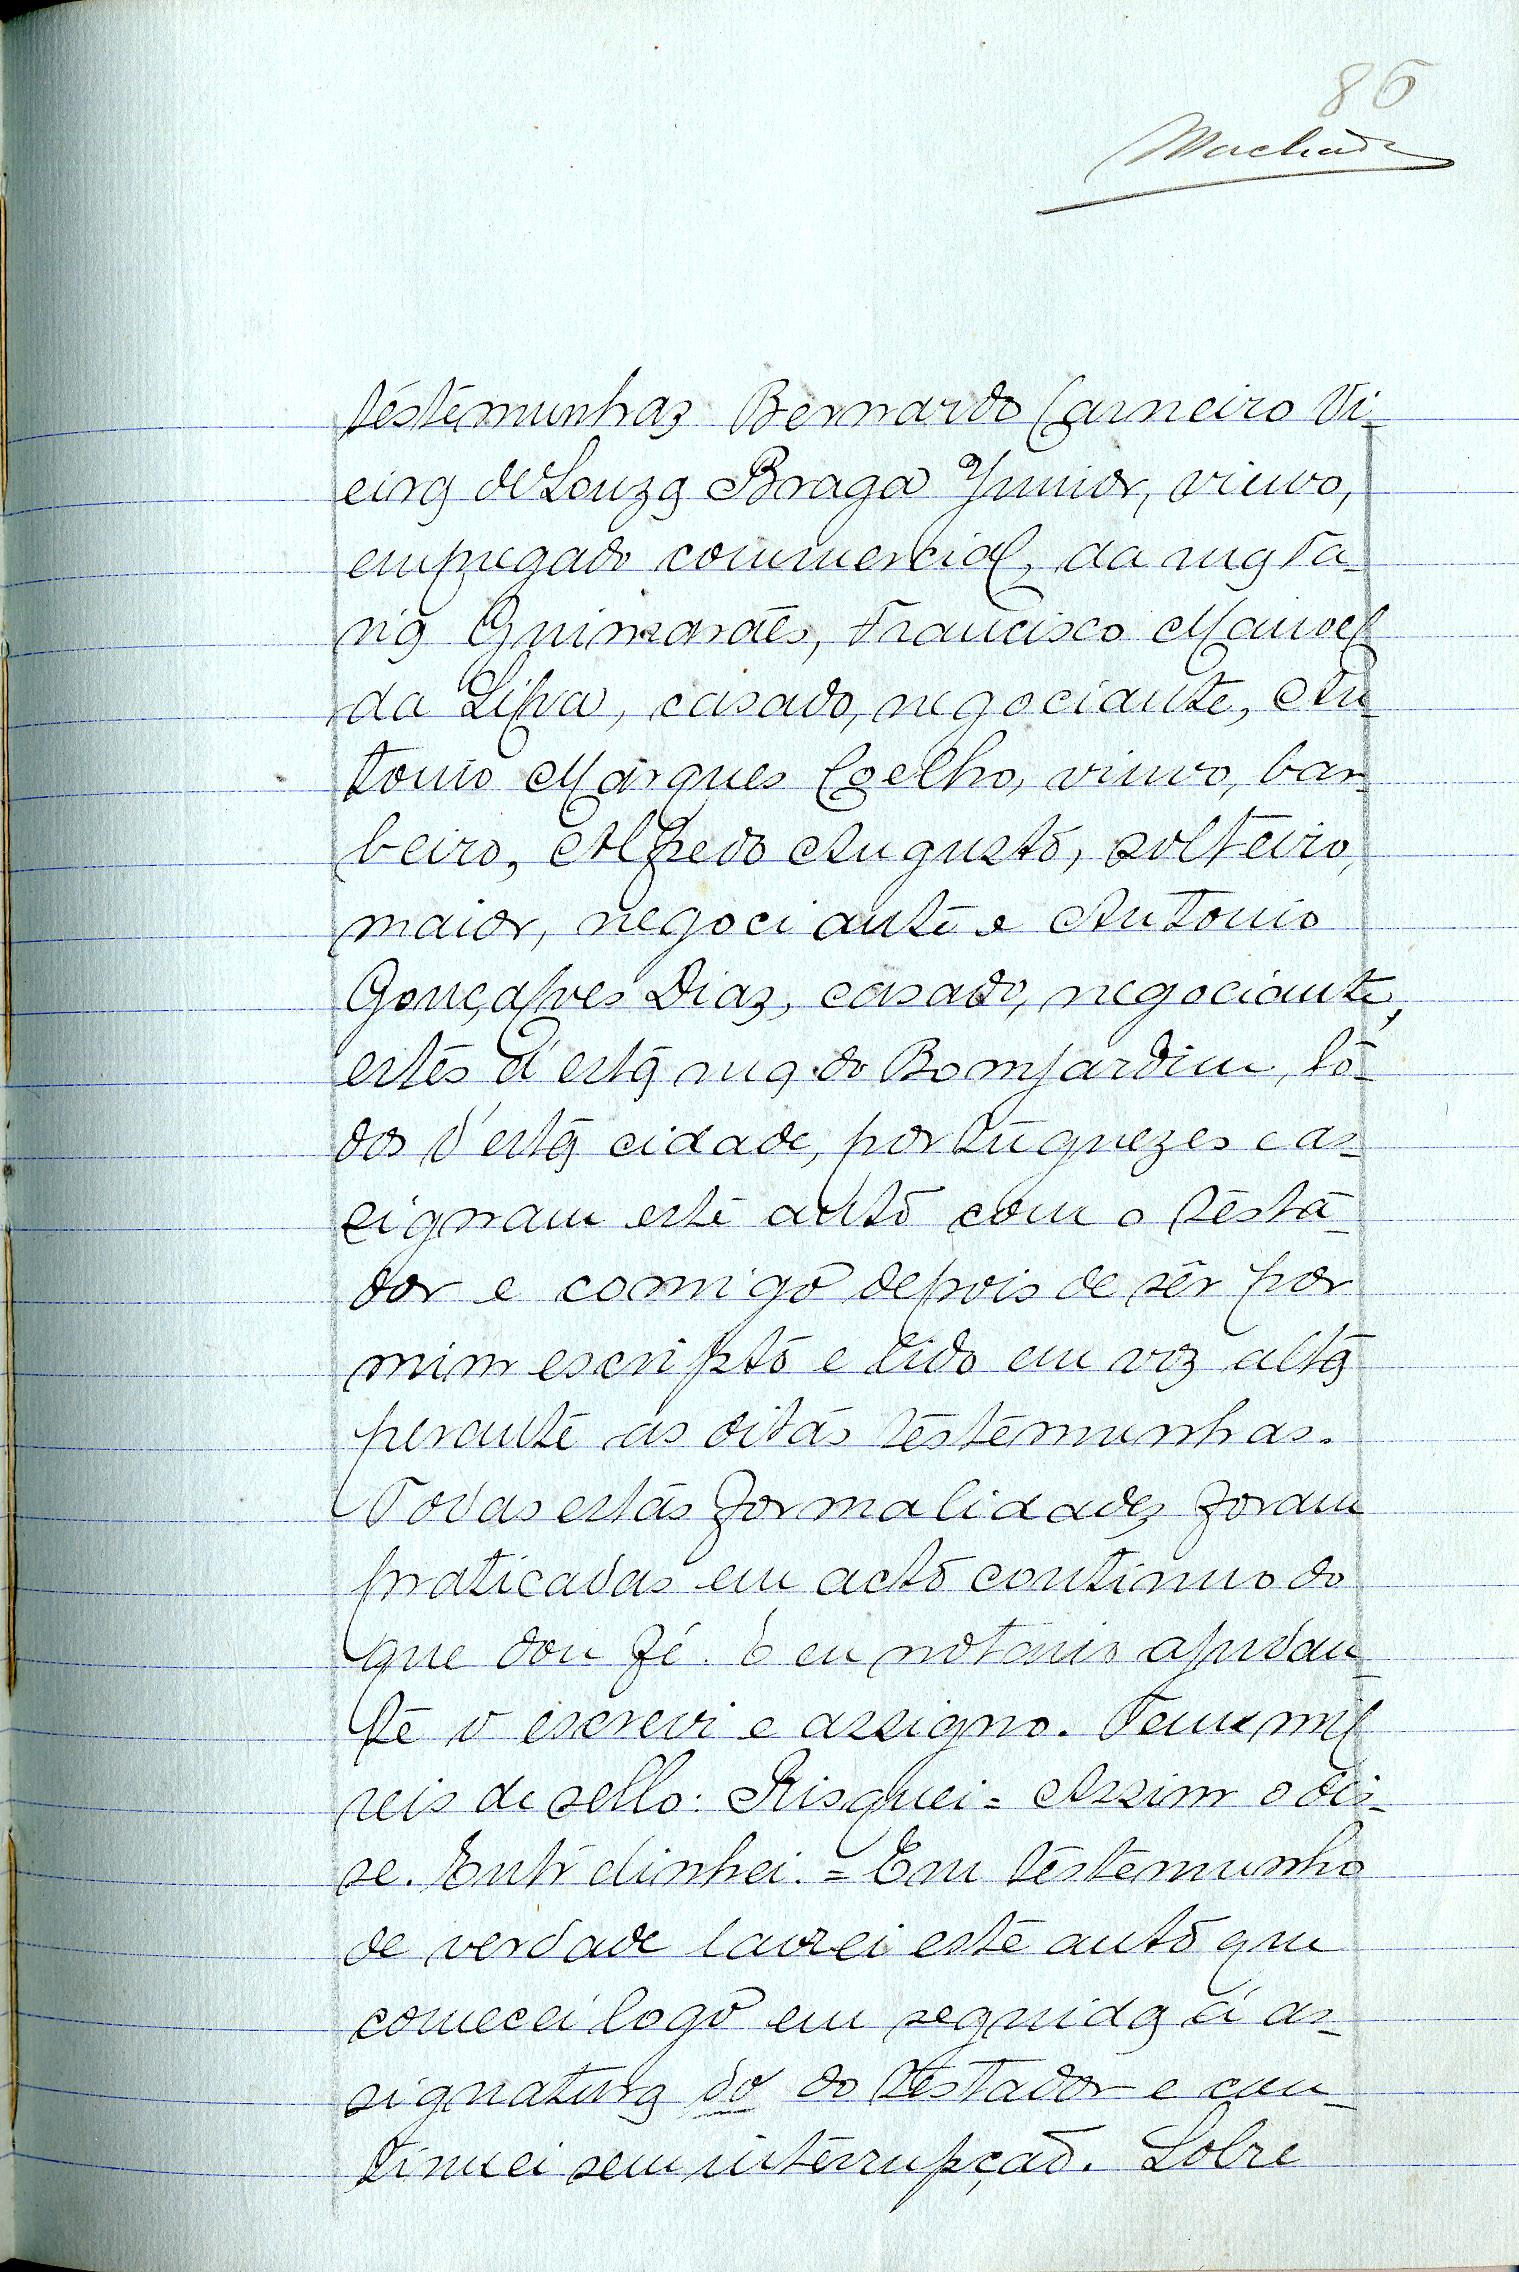 86
Machado
testemunhas Bernardo Carneiro Vi-
eira de Souza Braga Junior, viuvo,
empregado commercial, da rua Fa-
ria Guimarães, Francisco Manoel
da Silva, casado, negociante, An-
tonio Marques Coelho, viuvo, bar-
beiro, Alfredo Augusto, solteiro,
maior, negociante e Antonio
Gonçalves Dias, casado, negociante,
estes d'esta rua do Bomjardim, to-
dos d'esta cidade, portuguezes e as-
signam este auto com o testa-
dor e comigo depois de ser por
mim escripto e lido em voz alta
perante as ditas testemunhas.
Todas estas formalidades foram
praticadas em acto continuo do
que dou fé. E eu notario ajudan-
te o escrevi e assigno. Tem mil
reis de sello: Risquei = Assim o dis-
se. Entrelinhei. = Em testemunho
de verdade lavrei este auto que
comecei logo em seguida á as-
signatura do do testador e con-
tinuei sem interrupção. Sobre